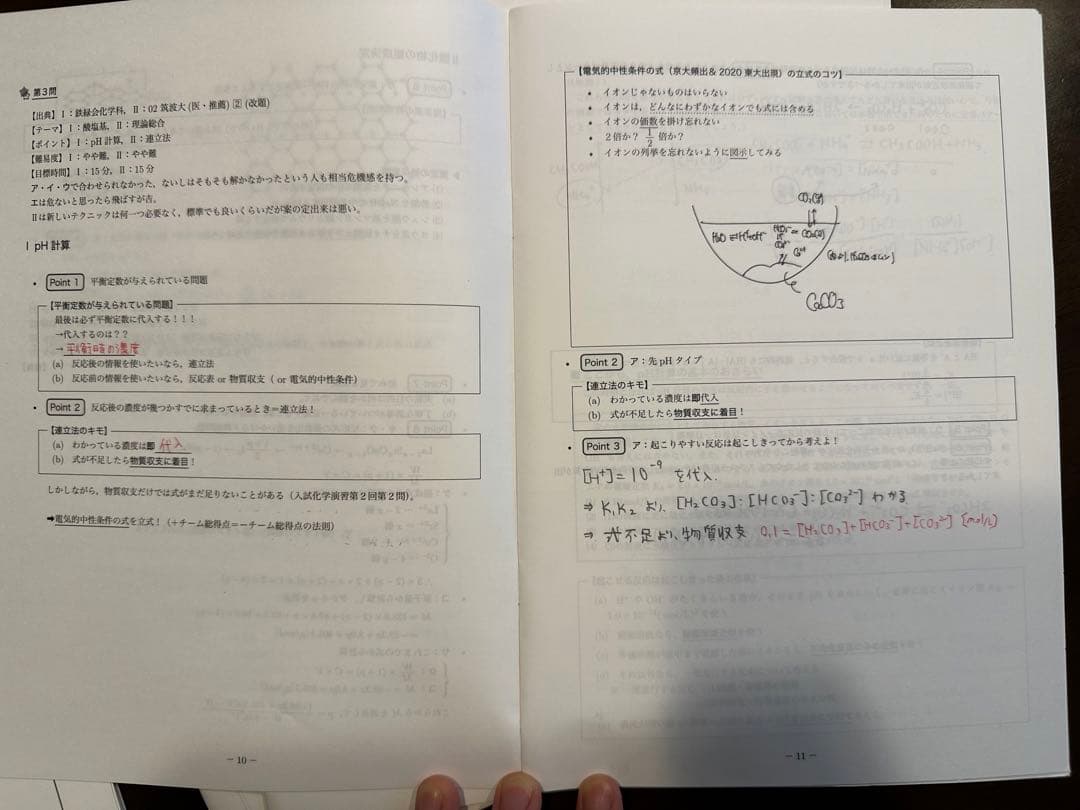 第3問
【出典】Ⅰ：鉄緑会化学科，Ⅱ：02 筑波大 (医・推薦) ② (改題)
【テーマ】Ⅰ：酸塩基，Ⅱ：理論総合
【ポイント】Ⅰ：pH 計算，Ⅱ：連立法
【難易度】Ⅰ：やや難，Ⅱ：やや難
【目標時間】Ⅰ：15 分，Ⅱ：15 分
ア・イ・ウで合わせられなかった，ないしはそもそも解かなかったという人も相当危機感を持つ。
エは危ないと思ったら飛ばすが吉。
Ⅱは新しいテクニックは何一つ必要なく，標準でも良いくらいだが案の定出来は悪い。
Ⅰ pH 計算
・ Point 1 平衡定数が与えられている問題
【平衡定数が与えられている問題】
最後は必ず平衡定数に代入する！！！
→代入するのは？？
→ 平衡時の濃度
(a) 反応後の情報を使いたいなら，連立法
(b) 反応前の情報を使いたいなら，反応表 or 物質収支（ or 電気的中性条件）
・ Point 2 反応後の濃度が幾つかすでに求まっているとき＝連立法！
【連立法のキモ】
(a) わかっている濃度は即 代入
(b) 式が不足したら物質収支に着目！
しかしながら，物質収支だけでは式がまだ足りないことがある（入試化学演習第２回第２問）。
➡電気的中性条件の式を立式！（＋チーム総得点＝－チーム総得点の法則）
－ 10 －
【電気的中性条件の式（京大頻出＆ 2020 東大出現）の立式のコツ】
・ イオンじゃないものはいらない
・ イオンは，どんなにわずかなイオンでも式には含める
・ イオンの価数を掛け忘れない
・ ２倍か？ 1/2 倍か？
・ イオンの列挙を忘れないように図示してみる
H₂O ⇄ H⁺+OH⁻
CaCO₃
・ Point 2 ア：先 pH タイプ
【連立法のキモ】
(a) わかっている濃度は即代入
(b) 式が不足したら物質収支に着目！
・ Point 3 ア：起こりやすい反応は起こしきってから考えよ！
[H⁺]＝10⁻⁹ を代入.
⇒ K₁K₂ より, [H₂CO₃]:[HCO₃⁻]:[CO₃²⁻] わかる
⇒ 式不足より、物質収支 0.1＝[H₂CO₃]+[HCO₃⁻]+[CO₃²⁻] (mol/L)
－ 11 －